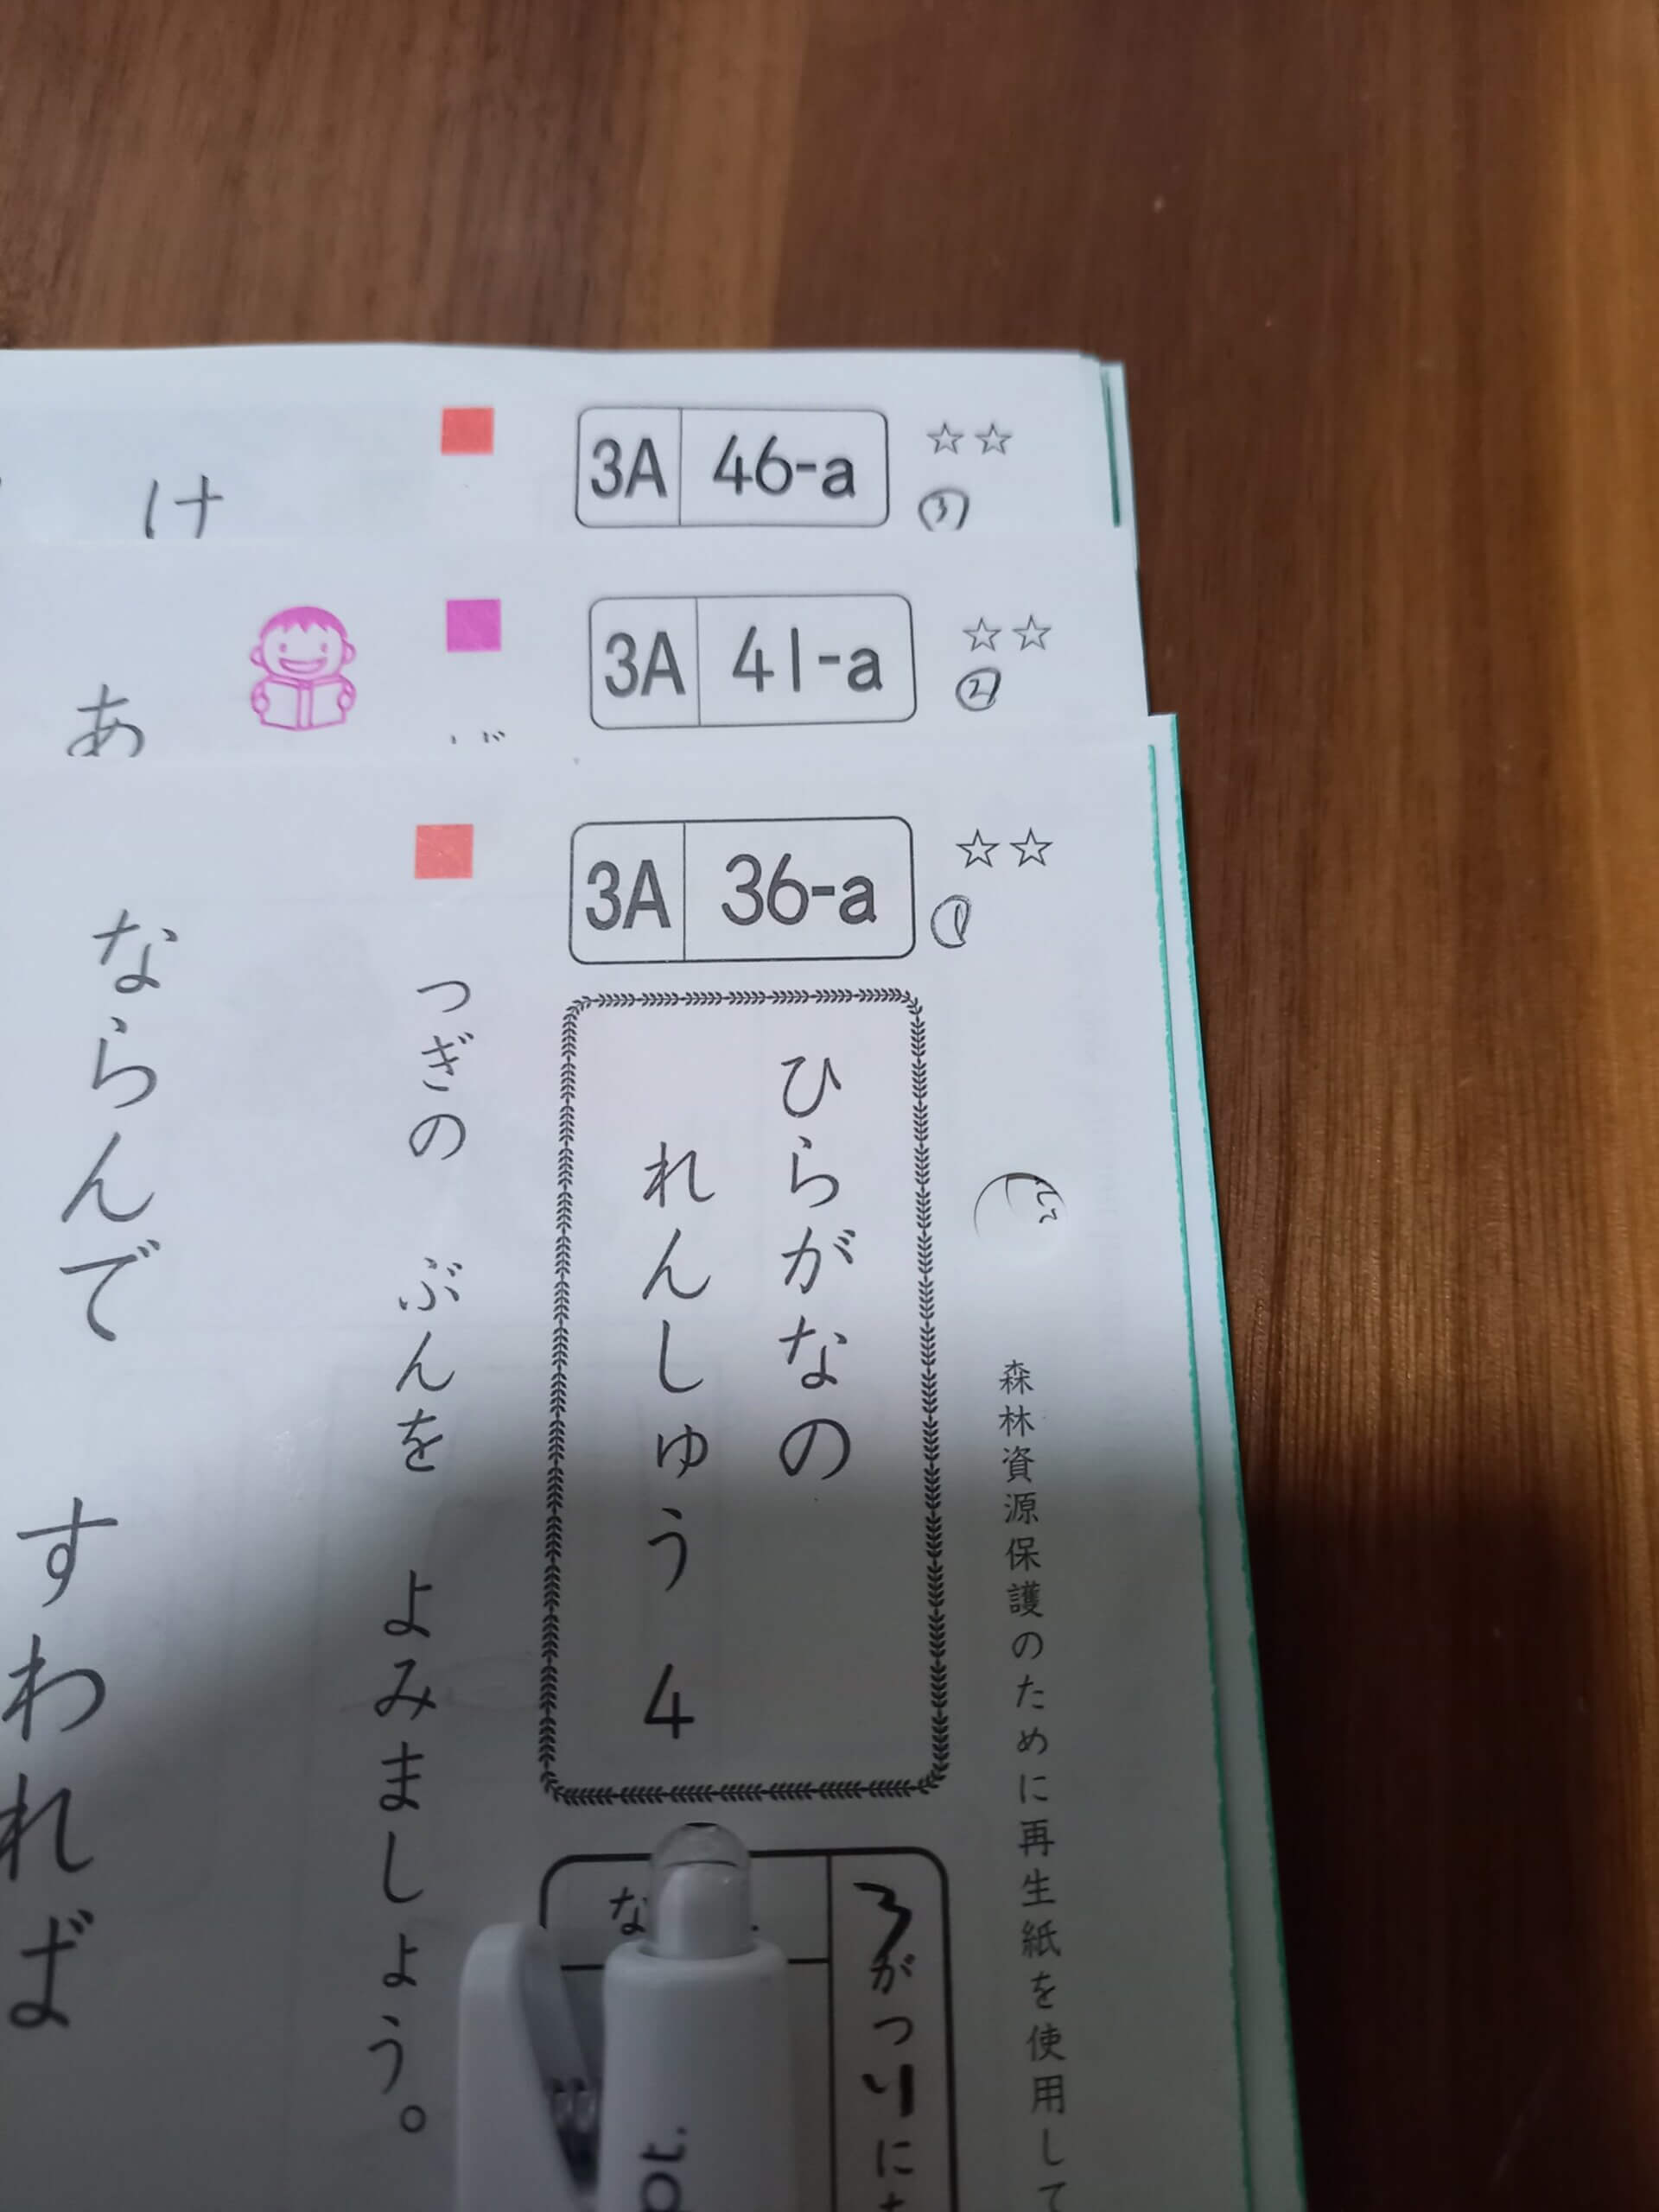 け
3A 46-a ☆☆
③
あ
3A 41-a ☆☆
②
3A 36-a ☆☆
①
森林資源保護のために再生紙を使用して
ひらがなの
れんしゅう 4
3がつ11にち
な
つぎの ぶんを よみましょう。
ならんで すわれば
pt.